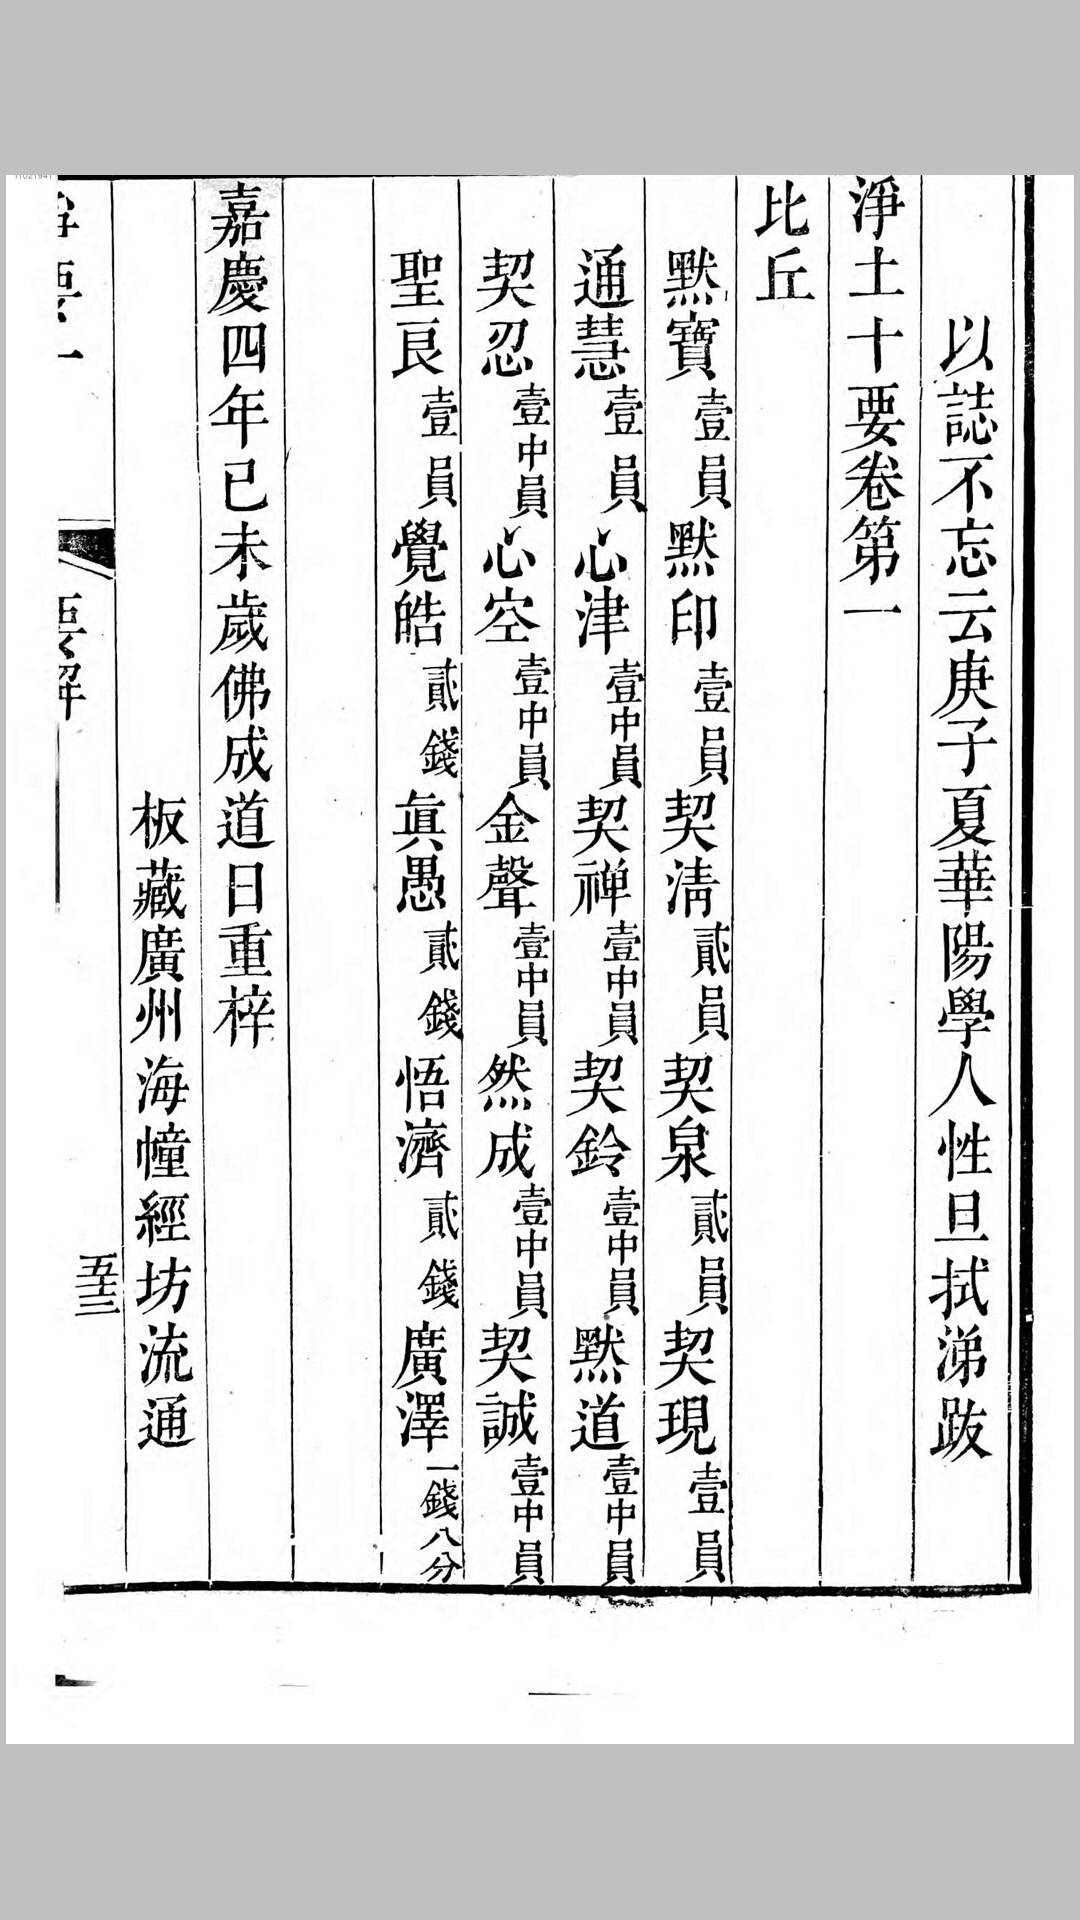 以誌不忘云庚子夏華陽學人性旦拭涕跋
淨土十要卷第一
比丘
默寶壹員默印壹員契清貳員契泉貳員契現壹員
通慧壹員心津壹中員契禅壹中員契鈴壹中員默道壹中員
契忍壹中員心空壹中員金聲壹中員然成壹中員契誠壹中員
聖良壹員覺皓貳錢眞愚貳錢悟濟貳錢廣澤一錢八分
嘉慶四年已未歲佛成道日重梓
板藏廣州海幢經坊流通
要一
要解
五十三